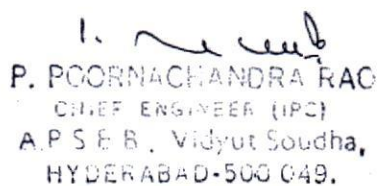 P. POORNACHANDRA RAO
CHIEF ENGINEER (IPC)
A.P.S.E.B., Vidyut Soudha,
HYDERABAD-500 049.